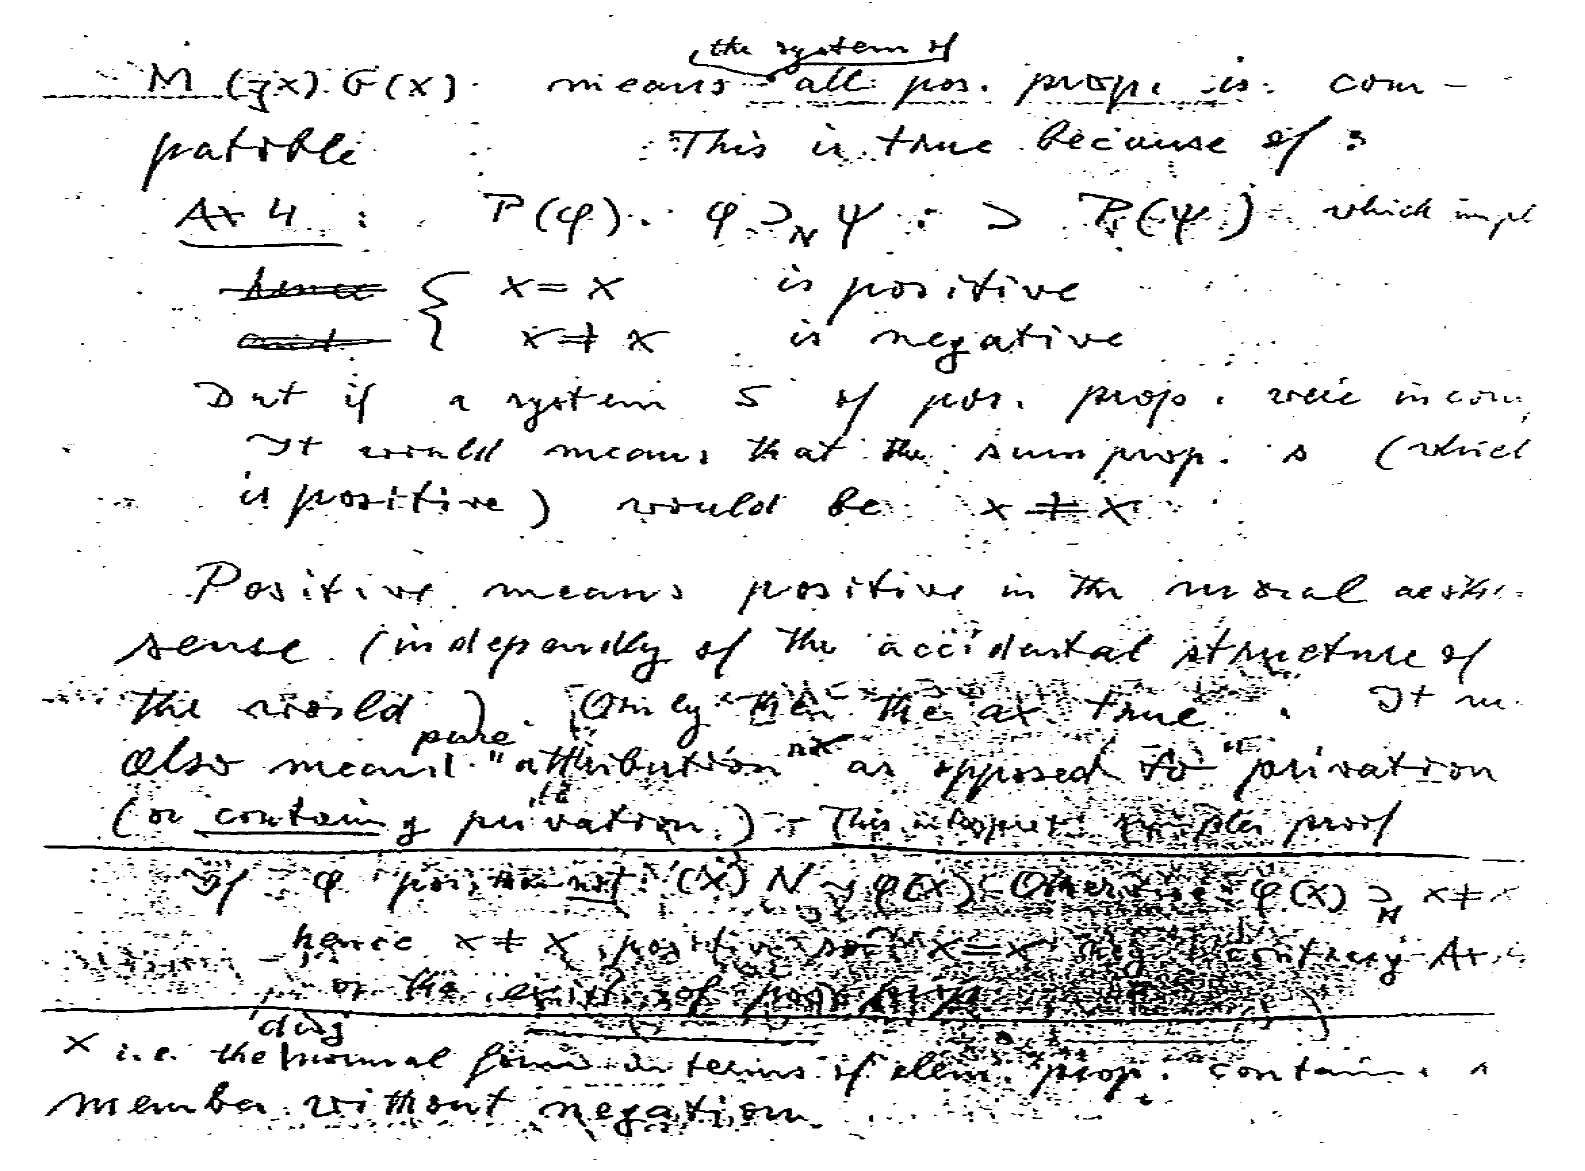 the system of
M (∃x) G(x) means all pos. prop. is com-
patible This is true because of :
Ax 4 : P(φ). φ ⊃_N ψ : ⊃ P(ψ) which impl
hence { x = x is positive
and { x ≠ x is negative
But if a system S of pos. prop. were incom
It would mean that the sum prop. s (which
is positive) would be x ≠ x
Positive means positive in the moral aesth.
sense (independly of the accidental structure of
the world). Only then the ax. true. It m
pure
also mean "attribution" x as opposed to "privation
(or containing privation.) - This interpret. simpler proof
If φ pos. then not (x) N ~ φ(x) Otherwise φ(x) ⊃_N x ≠ x
hence x ≠ x positive so x = x neg. contrary Ax.
or the of pos. prop.
disj
x i.e. the normal form in terms of elem. prop. contains a
member without negation.